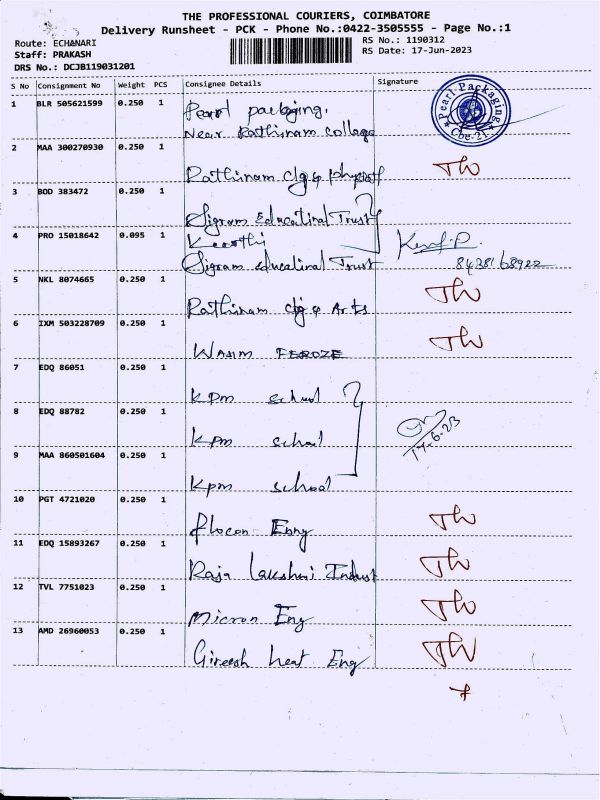 THE PROFESSIONAL COURIERS, COIMBATORE
Delivery Runsheet - PCK - Phone No.:0422-3505555 - Page No.:1
Route: ECHANARI RS No.: 1190312
Staff: PRAKASH RS Date: 17-Jun-2023
DRS No.: DCJB119031201
S No Consignment No Weight PCS Consignee Details Signature
1 BLR 505621599 0.250 1 Pearl packaging,
Near Rathinam college
Pearl Packaging
Cbe-21
2 MAA 300270930 0.250 1
Rathinam clg
3 BOD 383472 0.250 1
Educatinal Trust
4 PRO 15018642 0.095 1 Keerthi
educatinal Trust
5 NKL 8074665 0.250 1
Rathinam clg Arts
6 IXM 503228709 0.250 1
WASIM FEROZE
7 EDQ 86051 0.250 1
KPM school
8 EDQ 88782 0.250 1
KPM school
17-6-23
9 MAA 860501604 0.250 1
KPM school
10 PGT 4721020 0.250 1
Flocon Engg
11 EDQ 15893267 0.250 1
Raja Lakshmi Indust
12 TVL 7751023 0.250 1
Micron Eng
13 AMD 26960053 0.250 1
Gireesh heat Eng